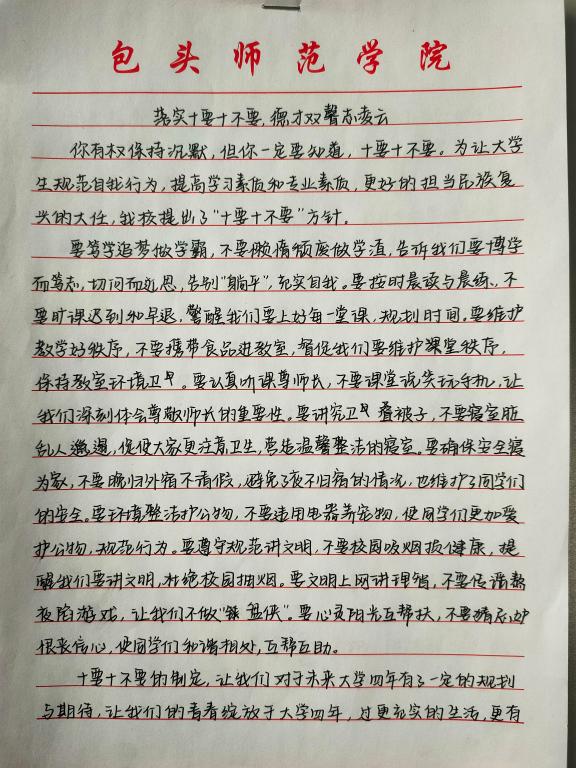 包头师范学院
落实十要十不要,德才双馨志凌云
你有权保持沉默,但你一定要知道,十要十不要。为让大学
生规范自我行为,提高学习素质和专业素质,更好的担当民族复
兴的大任,我校提出了“十要十不要”方针。
要笃学追梦做学霸,不要颓惰颓废做学渣,告诉我们要博学
而笃志,切问而近思,告别“躺平”,充实自我。要按时晨读与晨练,不
要旷课迟到和早退,警醒我们要上好每一堂课,规划时间。要维护
教学好秩序,不要携带食品进教室,督促我们要维护课堂秩序,
保持教室环境卫生。要认真听课尊师长,不要课堂说笑玩手机,让
我们深刻体会尊敬师长的重要性。要讲究卫生叠被子,不要寝室脏
乱人邋遢,促使大家更注意卫生,营造温馨整洁的寝室。要确保安全寝
为家,不要晚归外宿不请假,避免了夜不归宿的情况,也维护了同学们
的安全。要环境整洁护公物,不要违用电器养宠物,使同学们更加爱
护公物,规范行为。要遵守规范讲文明,不要校园吸烟损健康,提
醒我们要讲文明,杜绝校园抽烟。要文明上网讲理智,不要传谣熬
夜陷游戏,让我们不做“键盘侠”。要心灵阳光互帮扶,不要猜忌妒
恨丧信心,使同学们和谐相处,互帮互助。
十要十不要的制定,让我们对于未来大学四年有了一定的规划
与期待,让我们的青春绽放于大学四年,过更充实的生活,更有